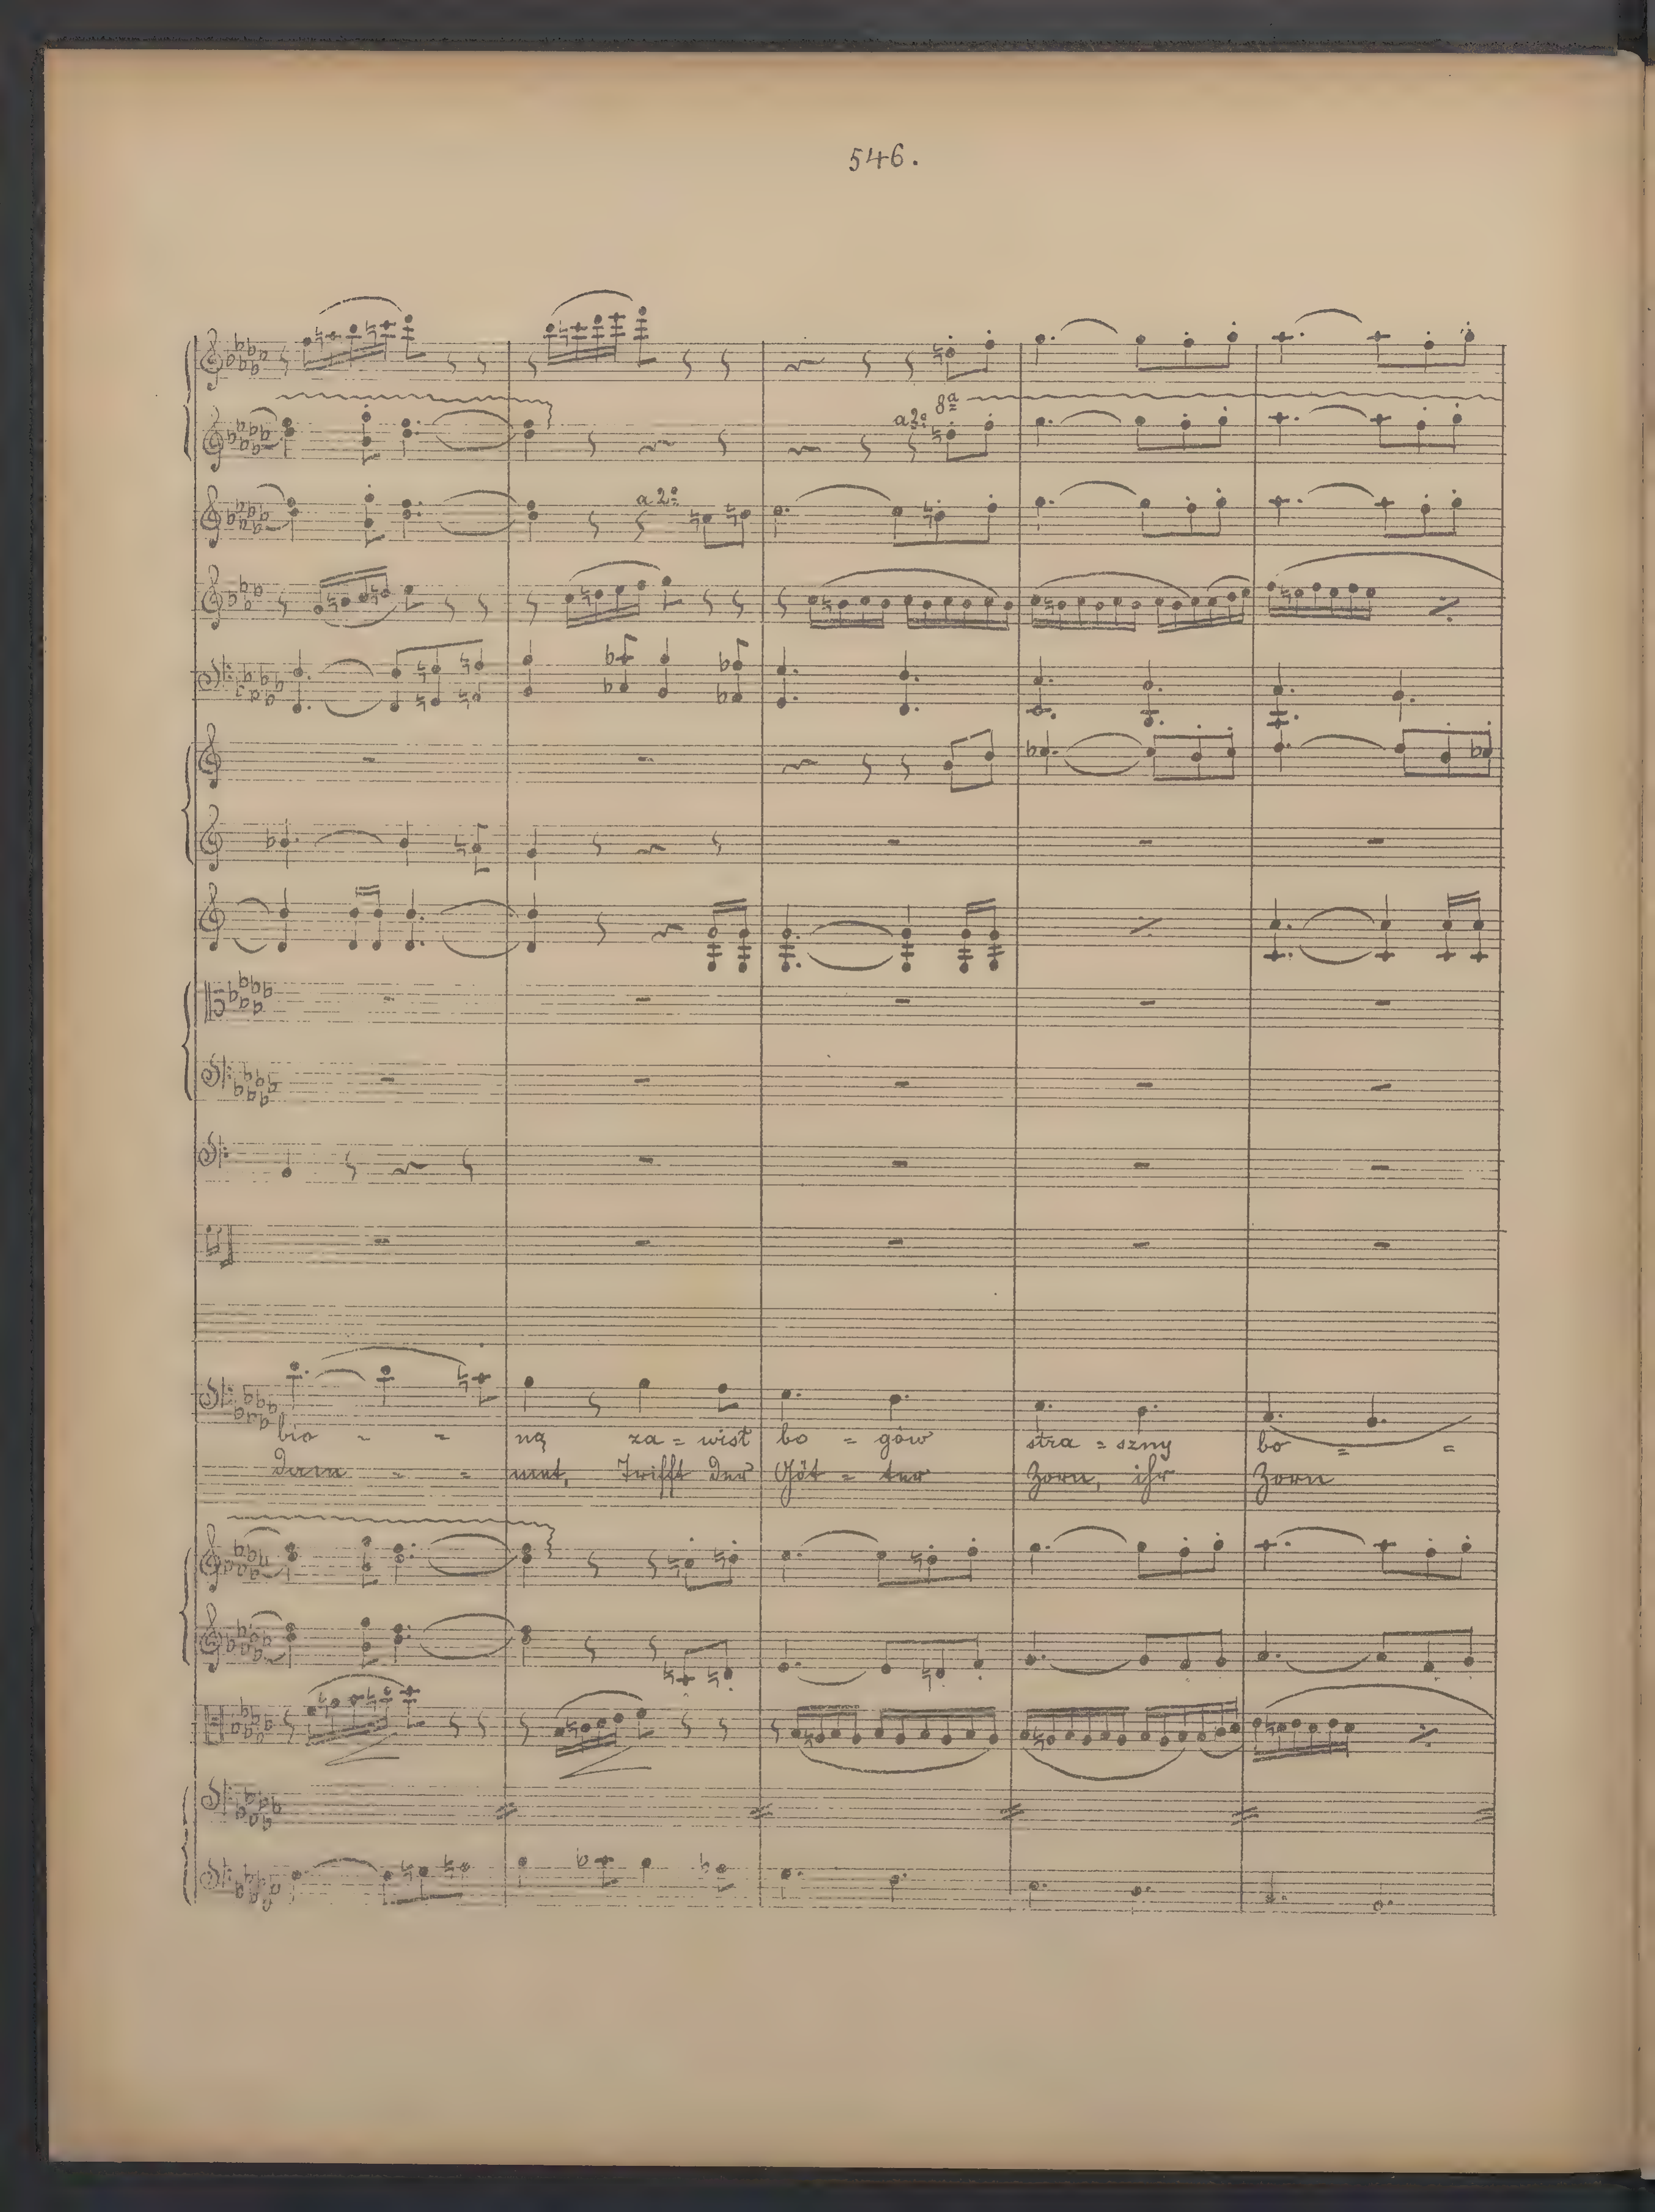 546.
8ª
a 2º
a 2º
bio - - ną za = wist bo = gów stra = szny bo = =
dam - = mt, Trifft der Göt = ter Zorn, ihr Zorn